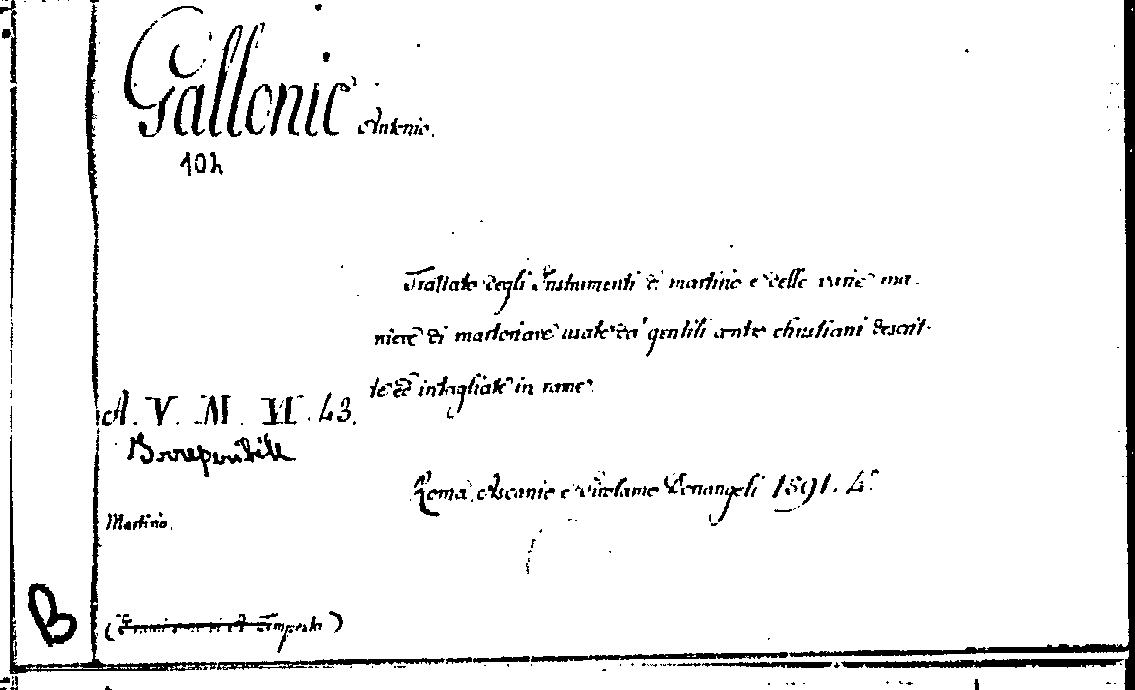 Gallonio Antonio.
10h
Trattato degli Instrumenti di martirio e delle varie ma-
niere di martoriare usate da' gentili contro christiani descrit-
te et intagliate in rame.
A. V. M. VI. 43.
Irreperibile
Roma, Ascanio e Girolamo Donangeli 1591. 4°
Martirio.
B
Tempesta)